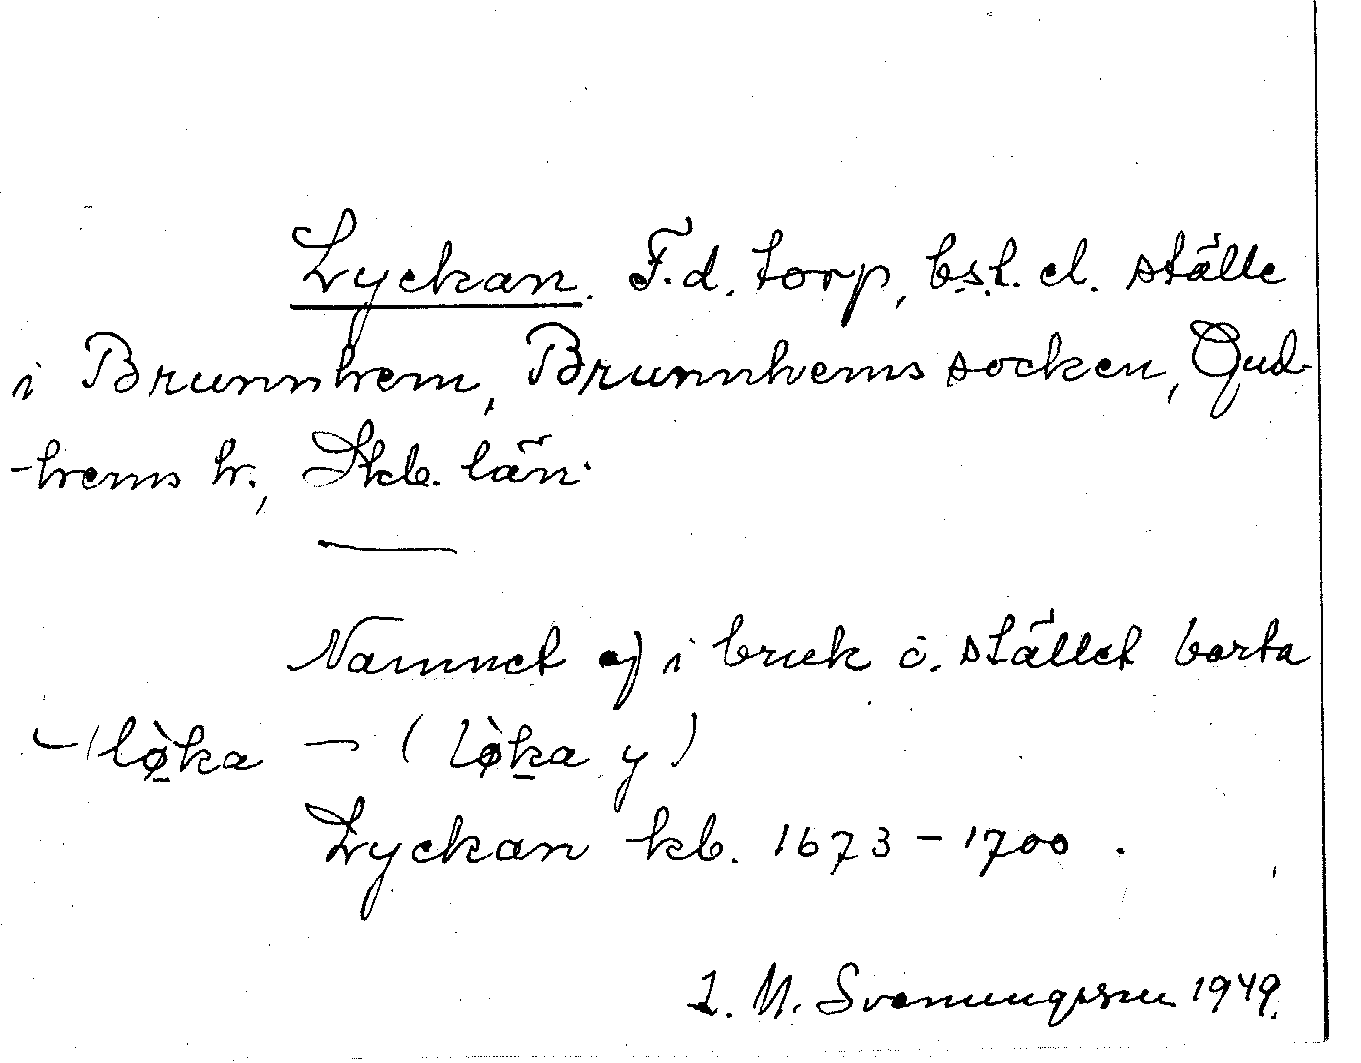 Lyckan. F.d. torp, bs.t. el. ställe
i Brunnhem, Brunnhems socken, Gud-
-hems hr., Skb. län.
Namnet ej i bruk o. stället borta
lø̀ka – (lø̀ka y)
Lyckan kb. 1673 – 1700.
I. M. Svenungsson 1949.